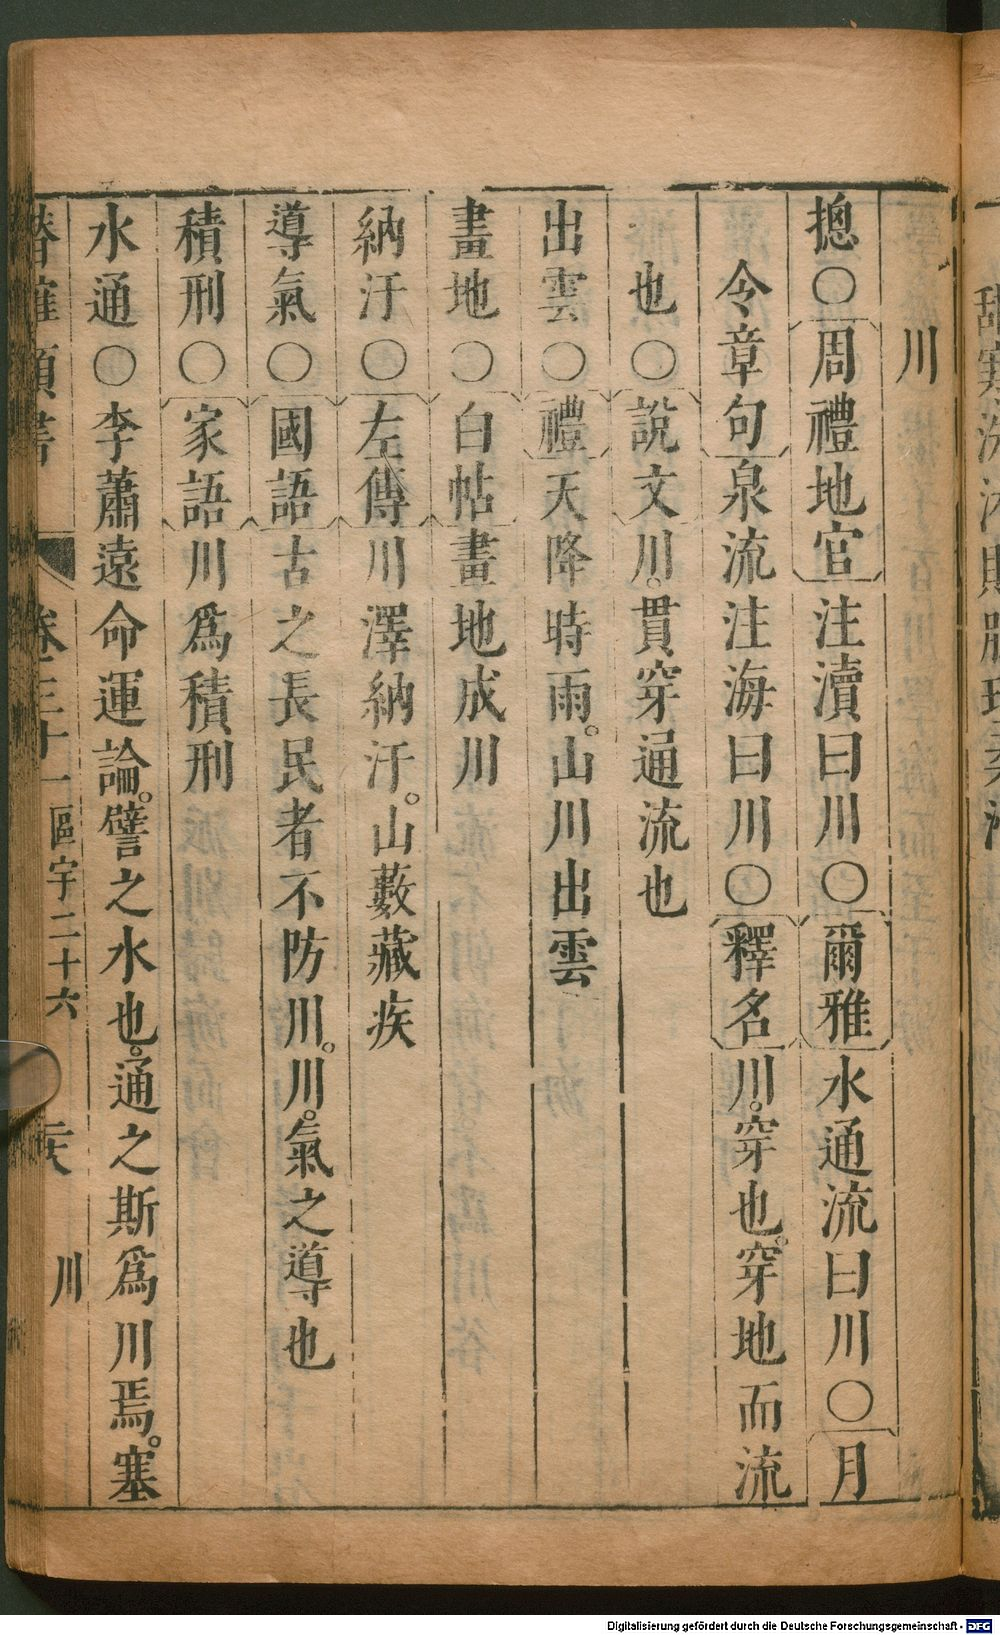 川
摠○周禮地官注瀆曰川○爾雅水通流曰川○月
令章句泉流注海曰川○釋名川。穿也。穿地而流
也○說文川。貫穿通流也
出雲○禮天降時雨。山川出雲
畫地○白帖畫地成川
納汙○左傳川澤納汙。山藪藏疾
導氣○國語古之長民者不防川。川。氣之導也
積刑○家語川爲積刑
水通○李蕭遠命運論。譬之水也。通之斯爲川焉。塞
卷三十一 區宇二十六 川
Digitalisierung gefördert durch die Deutsche Forschungsgemeinschaft - DFG